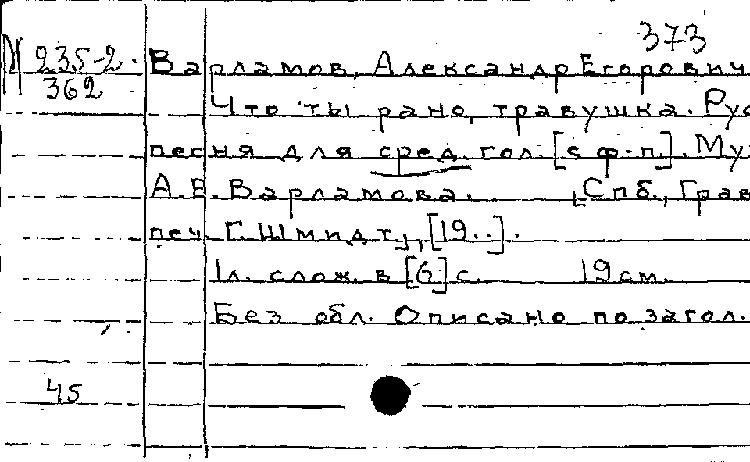 373
М 235-2. Варламов, Александр Егорович
362 Что ты рано, травушка. Рус
песня для сред. гол. [с ф-п]. Муз
А.Е. Варламова. [Спб., Грав
печ. Г. Шмидт], [19..].
1 л. слож. в [6] с. 19 см.
Без обл. Описано по загол.
45